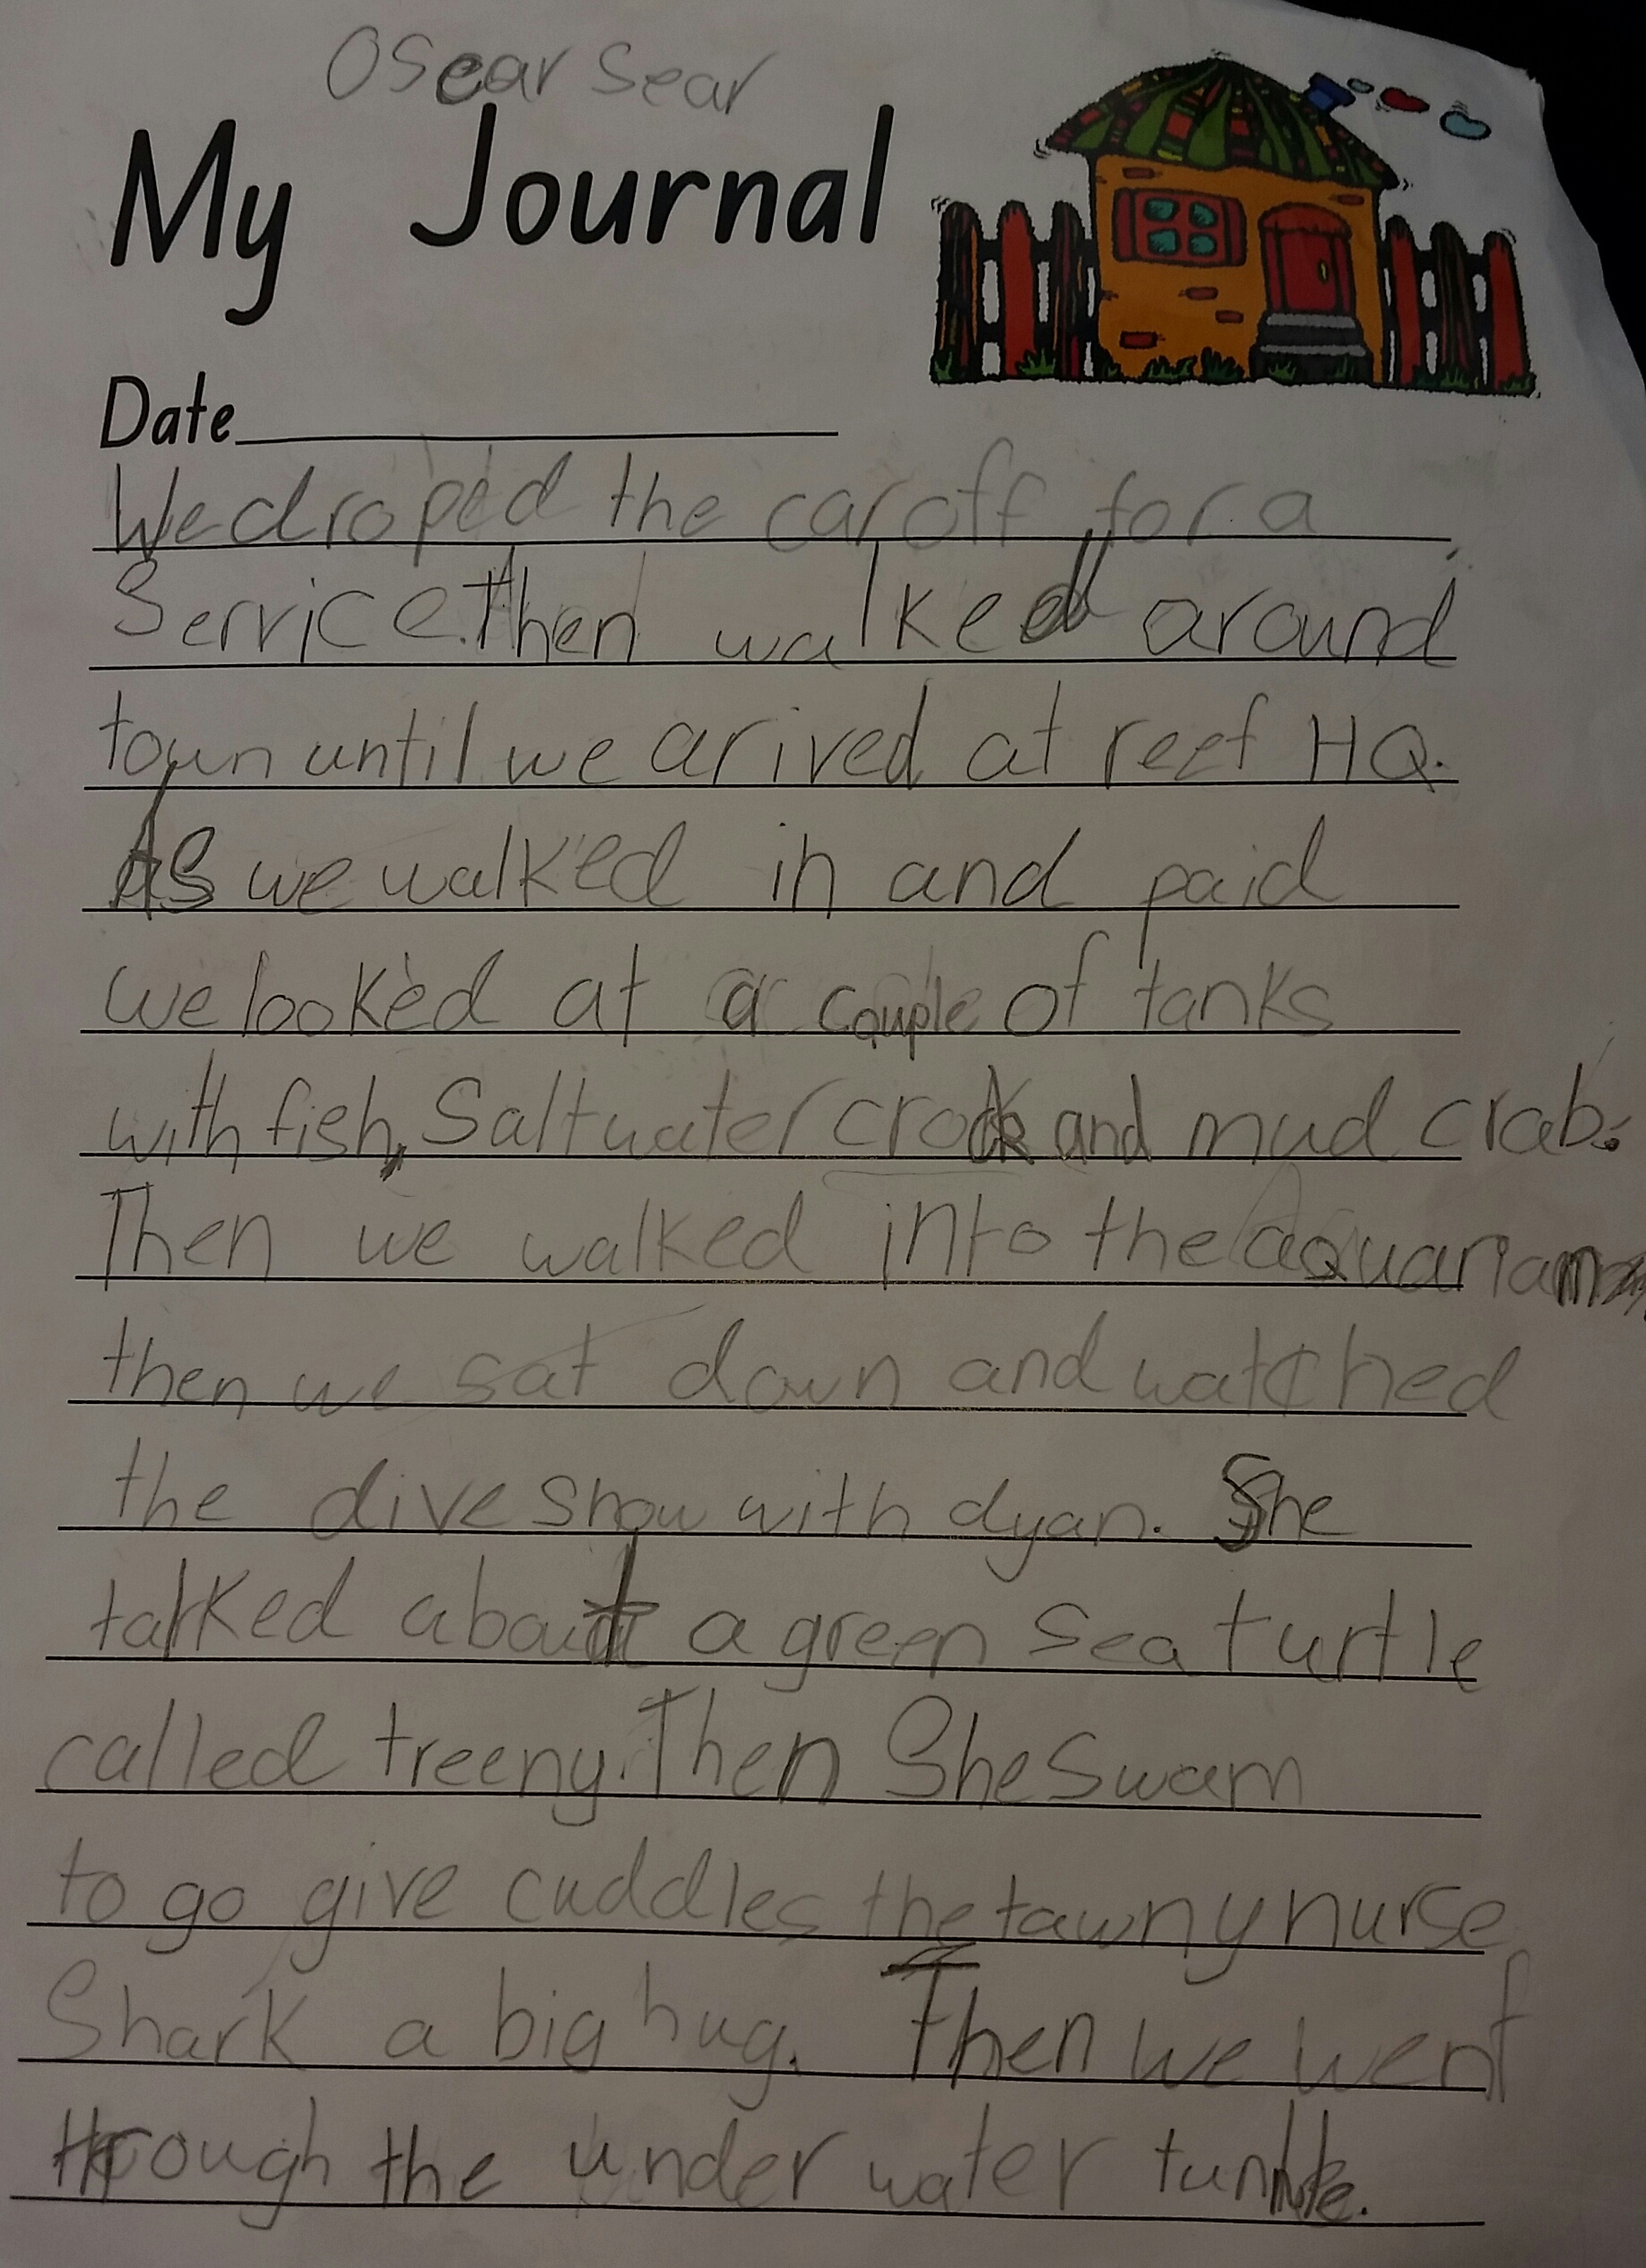 Oscar Sear
My Journal
Date
We droped the car off for a
Service. then walked around
town until we arived at reef HQ.
As we walked in and paid
we looked at a couple of tanks
with fish, Saltwater crock and mud crab.
Then we walked into the aquariam
then we sat down and watched
the dive show with dyan. She
talked about a green sea turtle
called treeny. Then She swam
to go give cuddles the tawny nurse
Shark a big hug. Then we went
through the under water tunnle.